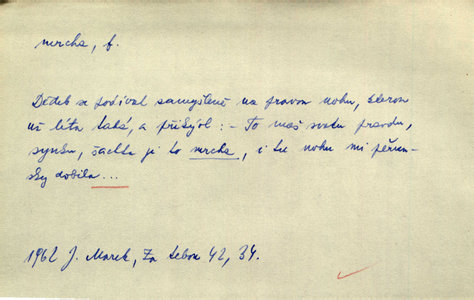 mrcha, f.
Dědek se podíval zamyšleně na pravou nohu, kterou
už léta tahá, a přikývl: – To máš svatu pravdu,
synku, šachta je to mrcha, i tu nohu mi pěrun-
sky dobila...
1962 J. Marek, Za tebou 42, 34.